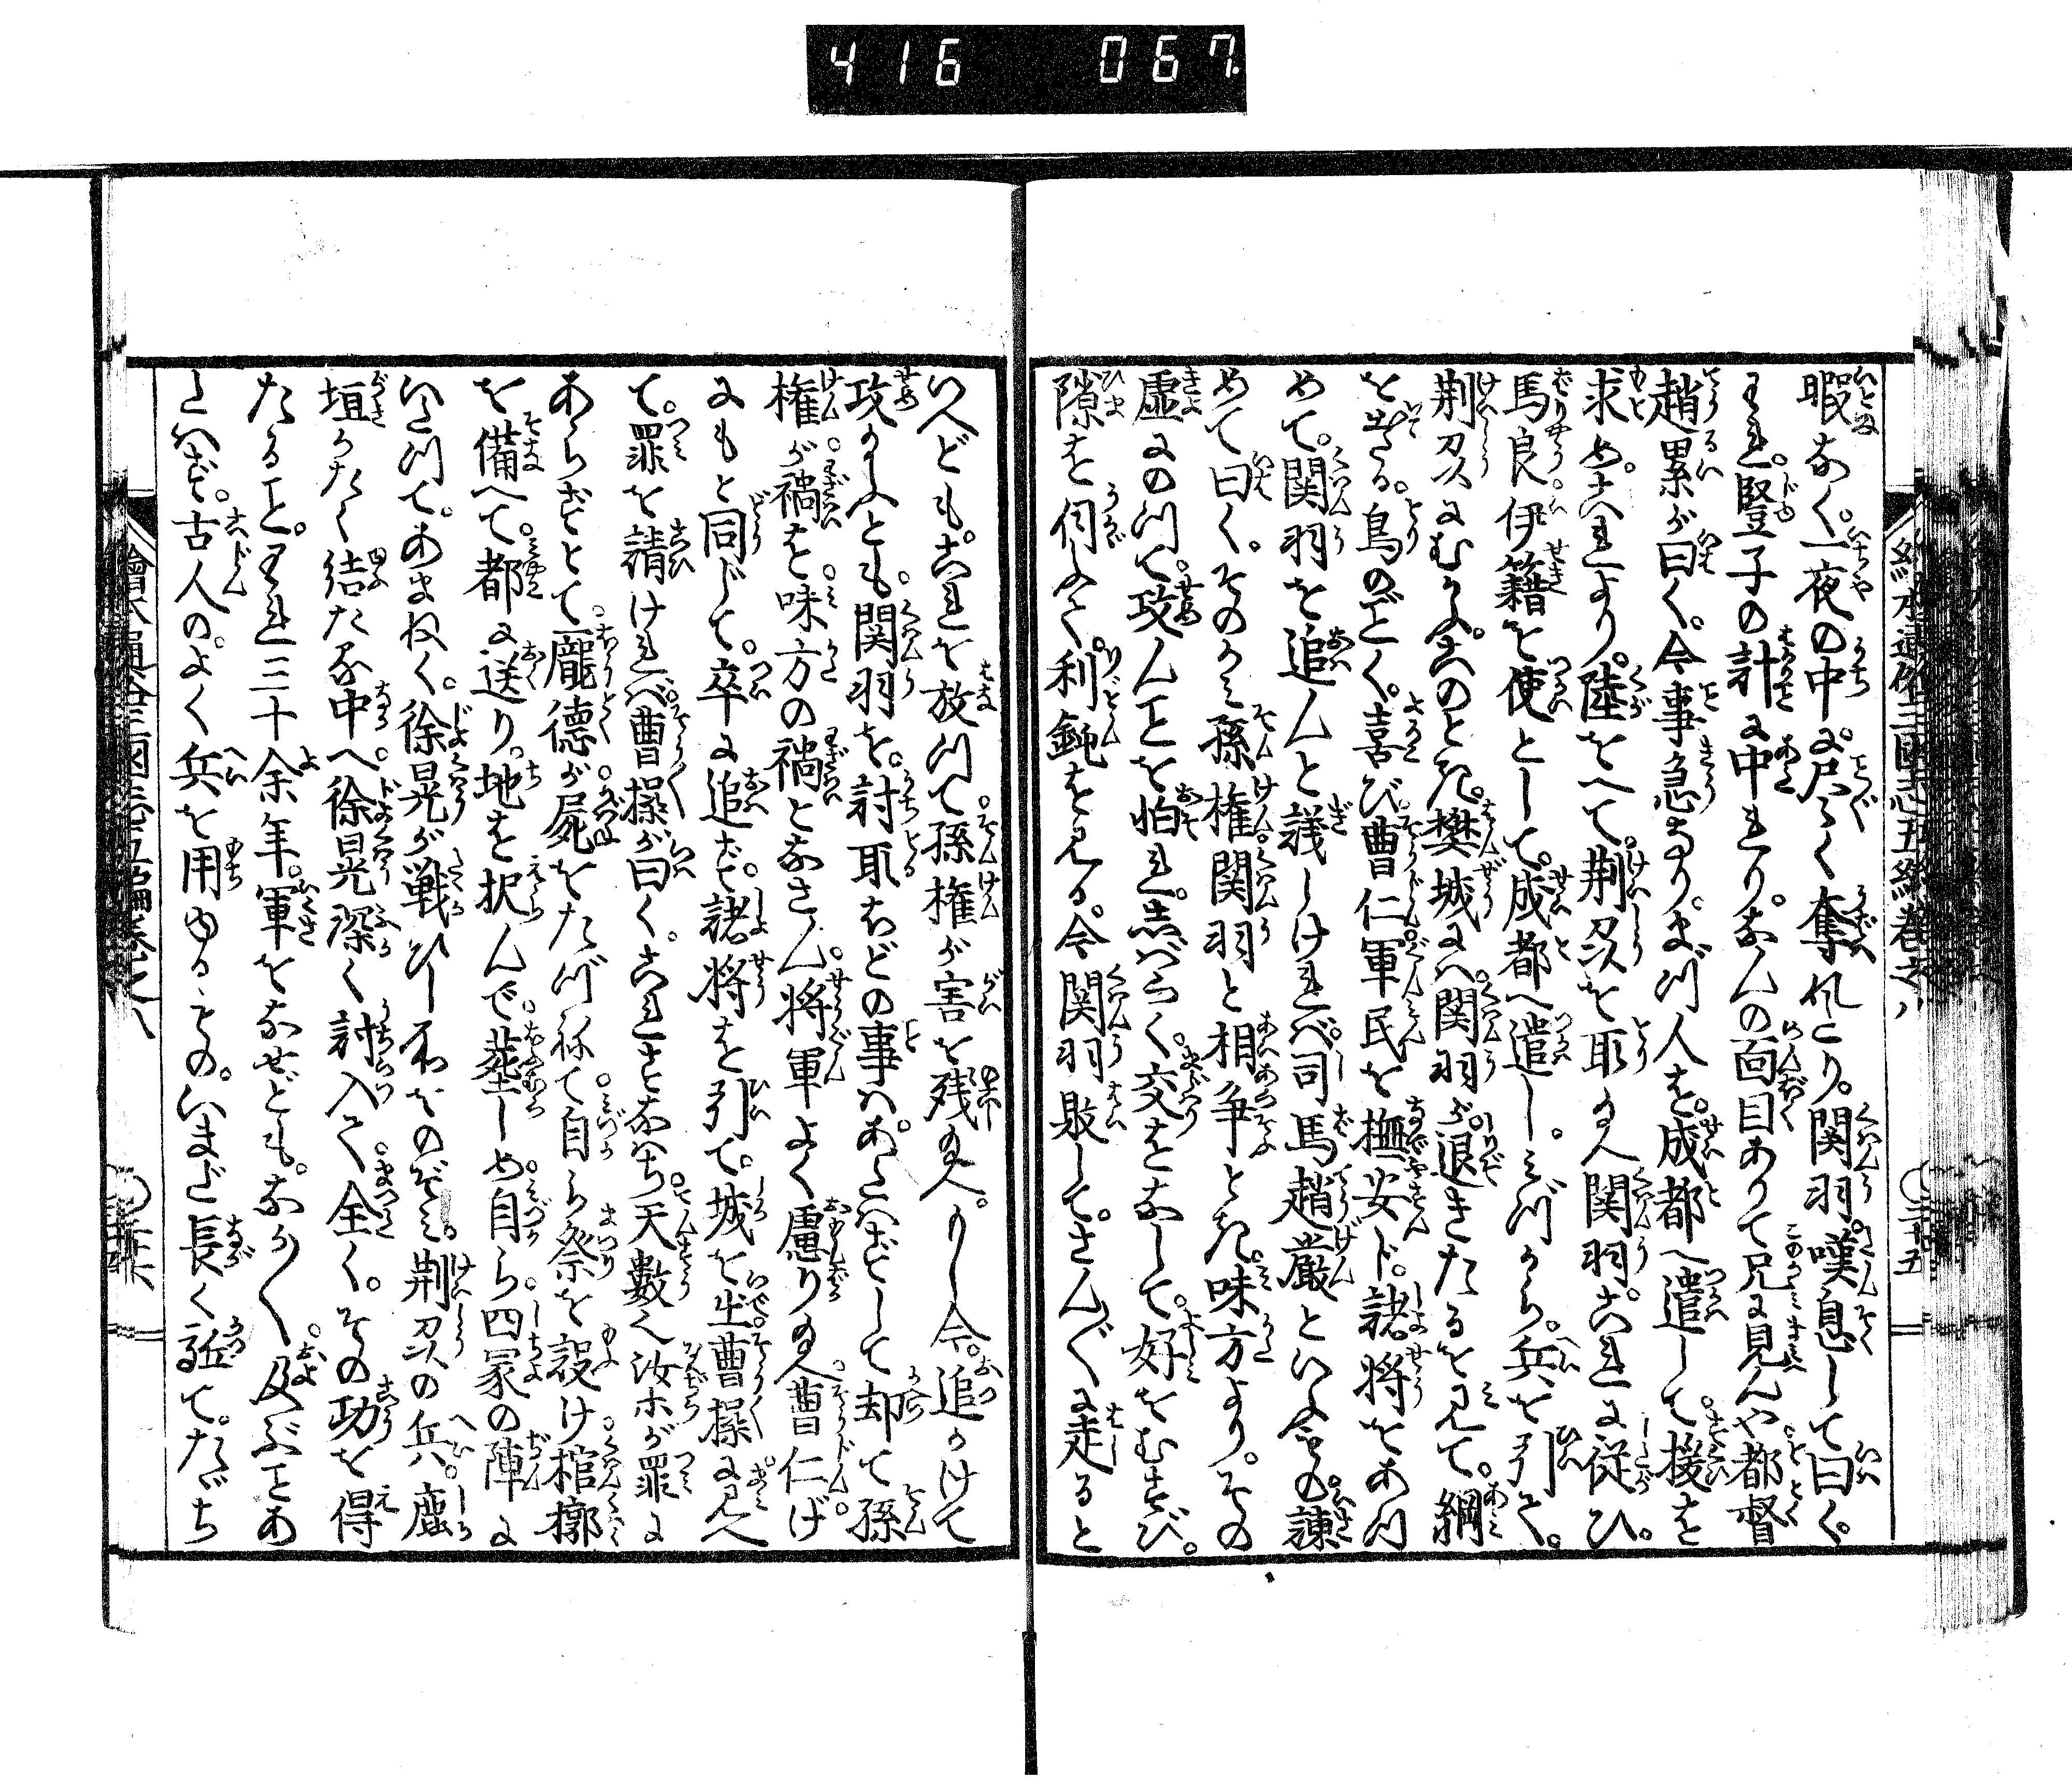 416 067
絵本通俗三國志五編巻之八
暇なく。一夜の中に尽く奪れたり。関羽。嘆息して曰く。
われ。豎子の計に中れり。なんの面目ありて兄に見んや都督
趙累が曰く。今事急なり。まづ人を。成都へ遣して。援を
求め。これより。陸をへて。荆州を取り給へ関羽。これに従ひ。
馬良。伊籍を使として。成都へ遣し。みづから。兵を引て。
荆州にむかふ。このとき。樊城には関羽が。退きたるを見て。網
を出たる。鳥のごとく。喜び。曹仁。軍民を撫安じ。諸将をあつ
めて。関羽を追んと議しければ。司馬趙厳といふもの。諌
めて曰く。そのかみ孫権。関羽と相争とき。味方より。その
虚にのつて。攻んことを怕れ。しばらく。交をなして。好をむすび。
隙を伺ふて。利鈍を見る。今関羽敗して。さんざんに走ると
いへども。これを放つて。孫権が害を残給へ。もし今。追かけて
攻給ふとも。関羽を。討取ほどの事は。あたはずして却て孫
権が禍を。味方の禍となさん。将軍よく慮り給へ。曹仁げ
にもと同じて。卒に追ず。諸将を引て。城を出。曹操に見へ
て。罪を請ければ。曹操が曰く。これこそすなはち。天數也汝ホが罪に
あらずとて。龐德が。屍をたづねて。自ら祭を設け。棺槨
を備へて。都に送り。地を択んで。葬しめ自ら。四冢の陣に
いたつて。あまねく。徐晃が戦ひし所をのぞみ。荆州の兵。塵
垣かたく結たる中へ。徐晃深く討入て。全く。その功を得
たること。われ三十余年。軍をなせども。なかなか。及ぶことあ
たはず。古人の。よく兵を用ゆるもの。いまだ長く駈て。たゞち
繪本通俗三国志五編巻之八